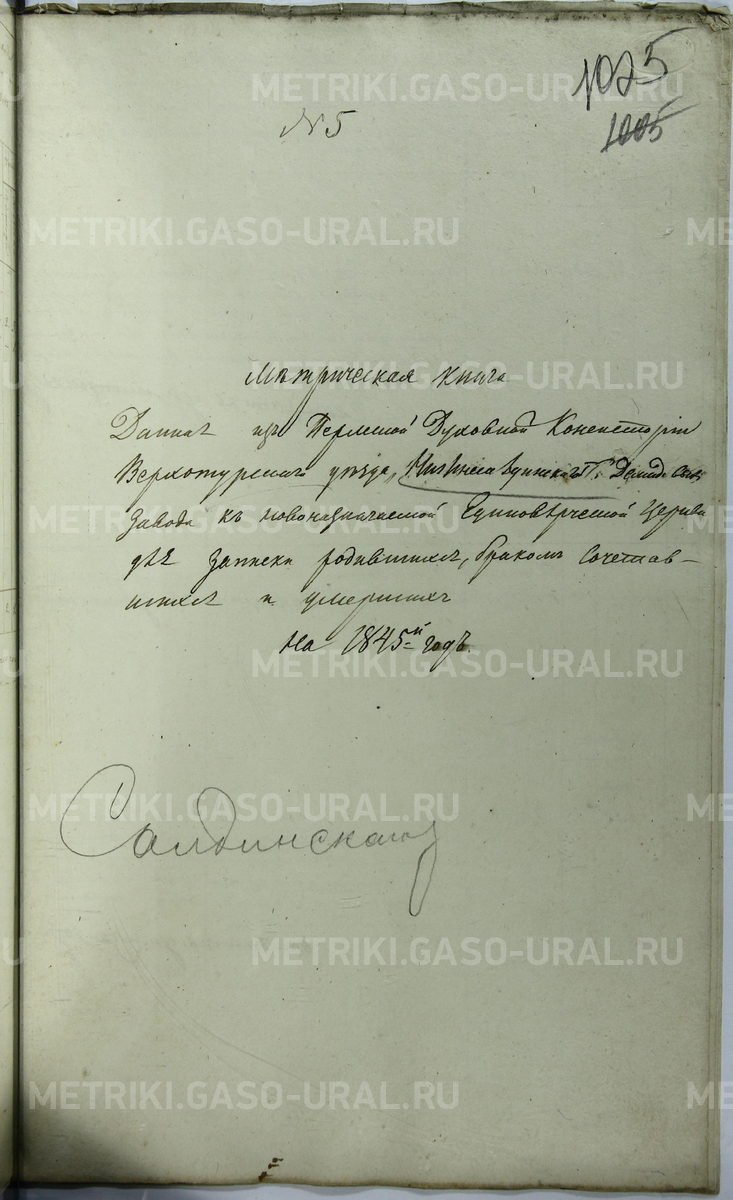 1025
1005
N 5
Метрическая книга
Данная изъ Пермской Духовной Консисторіи
Верхотурскаго уѣзда, Нижнесалдинскаго Г. Демидовыхъ
завода къ новоназначаемой Единовѣрческой Церкви
для записки родившихся, бракомъ сочетав-
шихся и умершихъ
на 1845й годъ.
Салдинскаго
METRIKI.GASO-URAL.RU